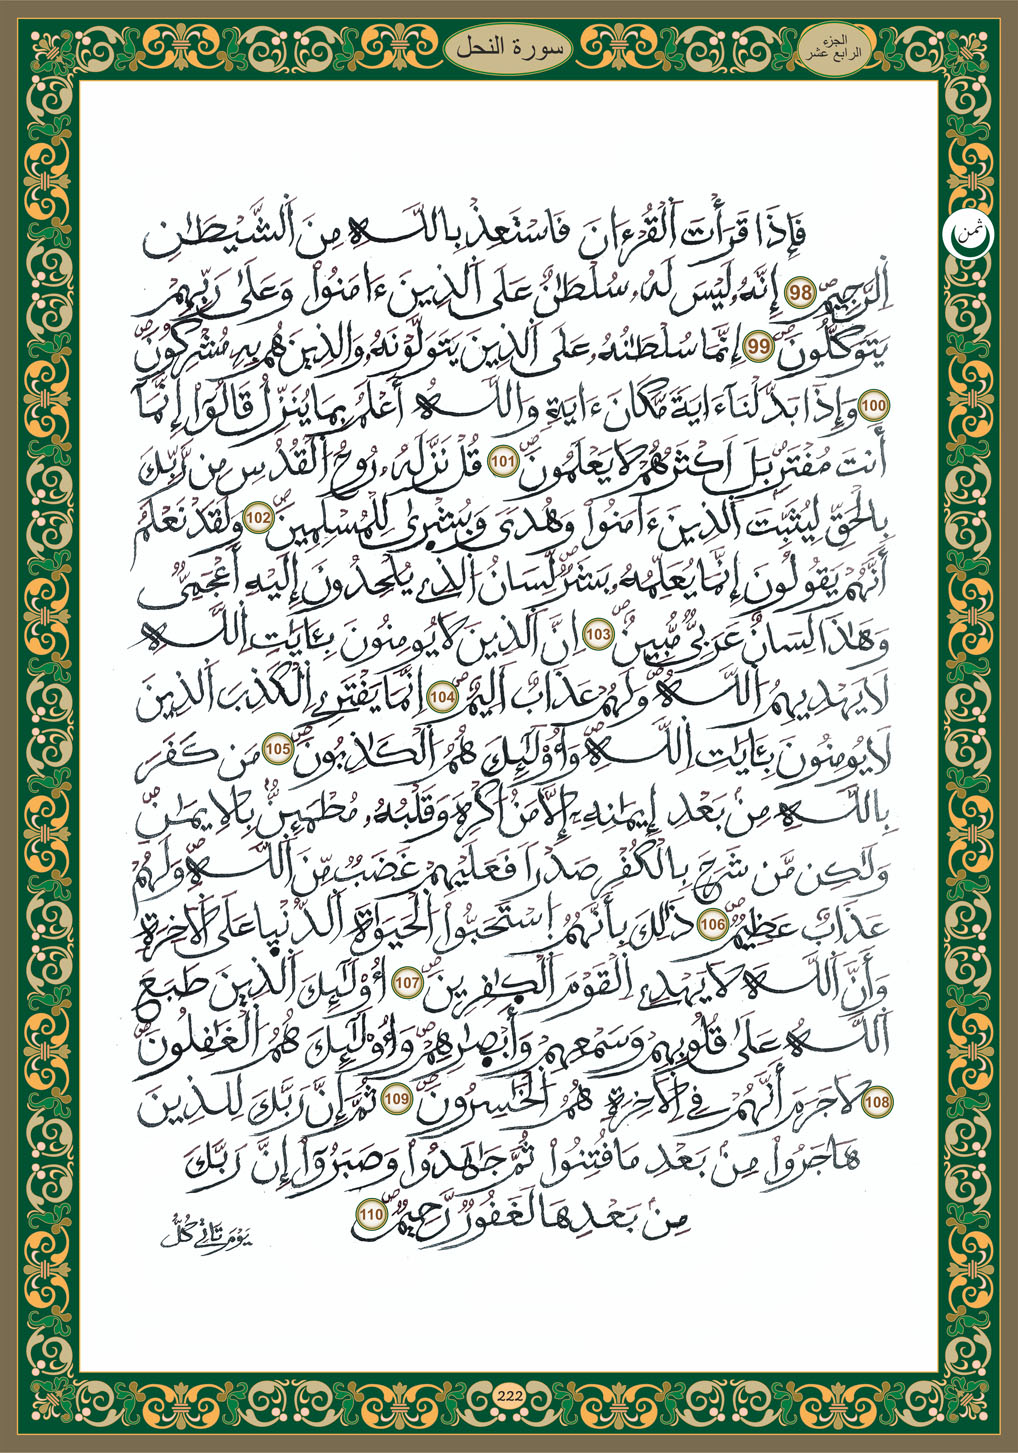 سورة النحل
الجزء
الرابع عشر
ثمن
فَإِذَا قَرَأْتَ اَلْقُرْءَانَ فَاسْتَعِذْ بِاللَّهِ مِنَ اَلشَّيْطَٰنِ
اِلرَّجِيمِ 98 إِنَّهُۥ لَيْسَ لَهُۥ سُلْطَٰنٌ عَلَى اَلذِينَ ءَامَنُواْ وَعَلَىٰ رَبِّهِمْ
يَتَوَكَّلُونَ 99 إِنَّمَا سُلْطَٰنُهُۥ عَلَى اَلذِينَ يَتَوَلَّوْنَهُۥ وَالذِينَ هُم بِهِۦ مُشْرِكُونَ
100 وَإِذَا بَدَّلْنَا ءَايَةً مَّكَانَ ءَايَةٍ وَاللَّهُ أَعْلَمُ بِمَا يُنَزِّلُ قَالُوٓاْ إِنَّمَآ
أَنتَ مُفْتَرٍۢ بَلَ اَكْثَرُهُمْ لَا يَعْلَمُونَ 101 قُلْ نَزَّلَهُۥ رُوحُ اُلْقُدُسِ مِن رَّبِّكَ
بِالْحَقِّ لِيُثَبِّتَ اَلذِينَ ءَامَنُواْ وَهُدىً وَبُشْرَىٰ لِلْمُسْلِمِينَ 102 وَلَقَدْ نَعْلَمُ
أَنَّهُمْ يَقُولُونَ إِنَّمَا يُعَلِّمُهُۥ بَشَرٌ لِّسَانُ اُلذِے يُلْحِدُونَ إِلَيْهِ أَعْجَمِيٌّ
وَهَٰذَا لِسَانٌ عَرَبِيٌّ مُّبِينٌ 103 اِنَّ اَلذِينَ لَا يُومِنُونَ بِـَٔايَٰتِ اِللَّهِ
لَا يَهْدِيهِمُ اُللَّهُ وَلَهُمْ عَذَابٌ اَلِيمٌ 104 اِنَّمَا يَفْتَرِے اِلْكَذِبَ اَلذِينَ
لَا يُومِنُونَ بِـَٔايَٰتِ اِللَّهِ وَأُوْلَٰٓئِكَ هُمُ اُلْكَٰذِبُونَ 105 مَن كَفَرَ
بِاللَّهِ مِنۢ بَعْدِ إِيمَٰنِهِۦٓ إِلَّا مَنُ اكْرِهَ وَقَلْبُهُۥ مُطْمَئِنٌّۢ بِالِايمَٰنِ
وَلَٰكِن مَّن شَرَحَ بِالْكُفْرِ صَدْراً فَعَلَيْهِمْ غَضَبٌ مِّنَ اَللَّهِ وَلَهُمْ
عَذَابٌ عَظِيمٌ 106 ذَٰلِكَ بِأَنَّهُمُ اُسْتَحَبُّواْ اُلْحَيَوٰةَ اَلدُّنْيَا عَلَى اَلَاخِرَةِ
وَأَنَّ اَللَّهَ لَا يَهْدِے اِلْقَوْمَ اَلْكَٰفِرِينَ 107 أُوْلَٰٓئِكَ اَلذِينَ طَبَعَ
اَللَّهُ عَلَىٰ قُلُوبِهِمْ وَسَمْعِهِمْ وَأَبْصَٰرِهِمْ وَأُوْلَٰٓئِكَ هُمُ اُلْغَٰفِلُونَ
108 لَا جَرَمَ أَنَّهُمْ فِي اِلَاخِرَةِ هُمُ اُلْخَٰسِرُونَ 109 ثُمَّ إِنَّ رَبَّكَ لِلذِينَ
هَاجَرُواْ مِنۢ بَعْدِ مَا فُتِنُواْ ثُمَّ جَٰهَدُواْ وَصَبَرُوٓاْ إِنَّ رَبَّكَ
مِنۢ بَعْدِهَا لَغَفُورٌ رَّحِيمٌ 110
يَوْمَ تَأْتِے كُلُّ
222